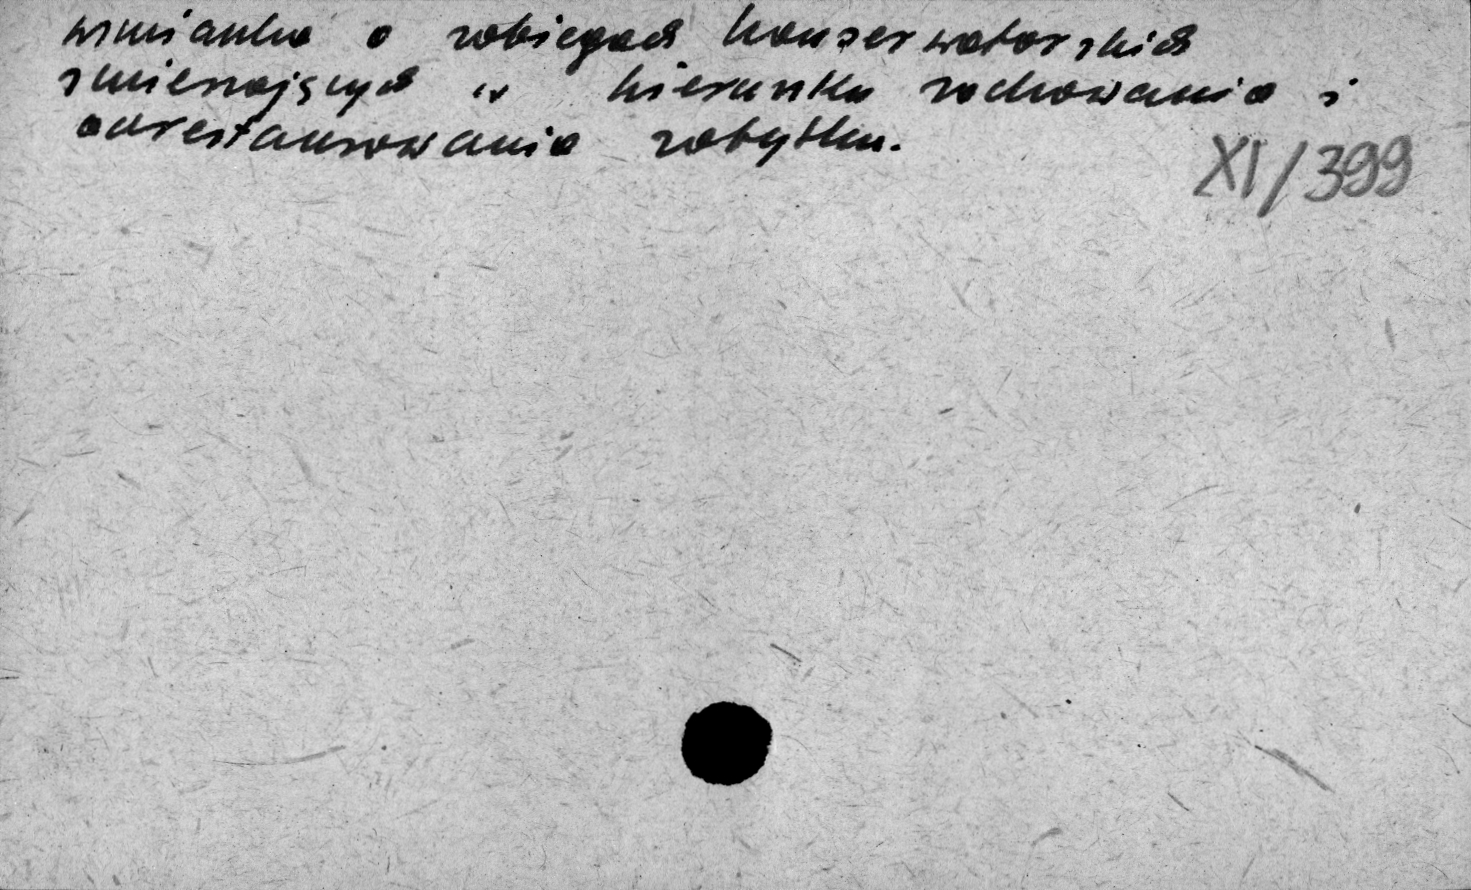 wzmianka o zabiegach konserwatorskich
zmierzających w kierunku zachowania i
odrestaurowania zabytku.
XI/399